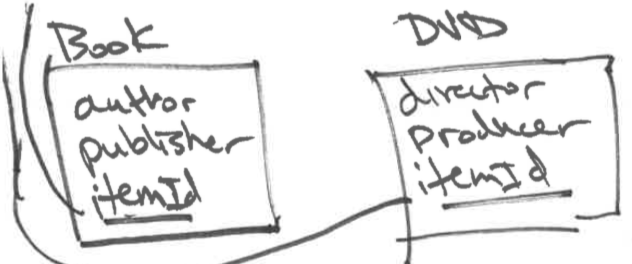 Book
author
publisher
itemId
DVD
director
producer
itemId